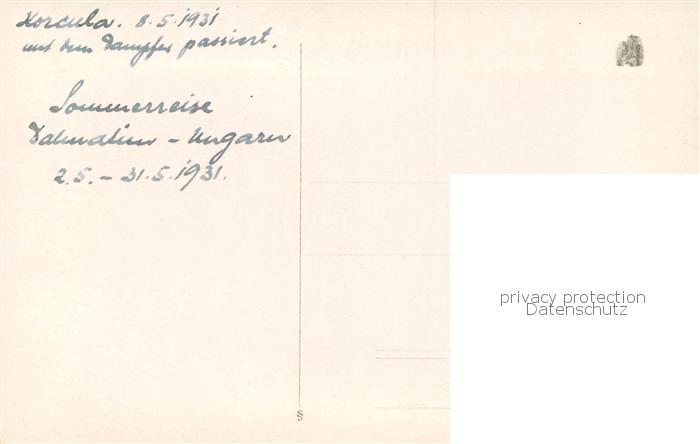 Korcula. 8.5.1931
mit dem Dampfer passiert.
Sommerreise
Dalmatien - Ungarn
2.5. - 31.5.1931.
§
privacy protection
Datenschutz